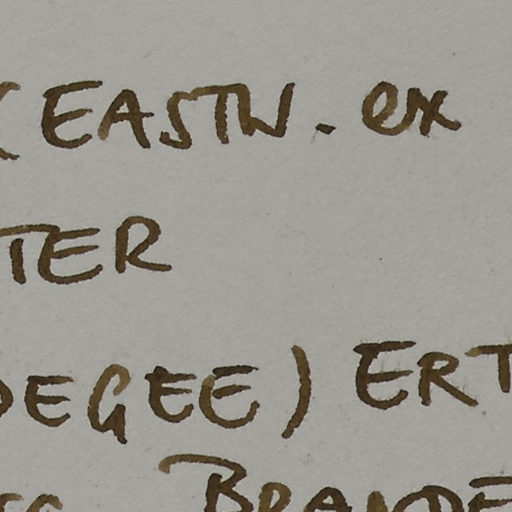 EASTW. ex
TER
DEGEE) ERT
BRANDE